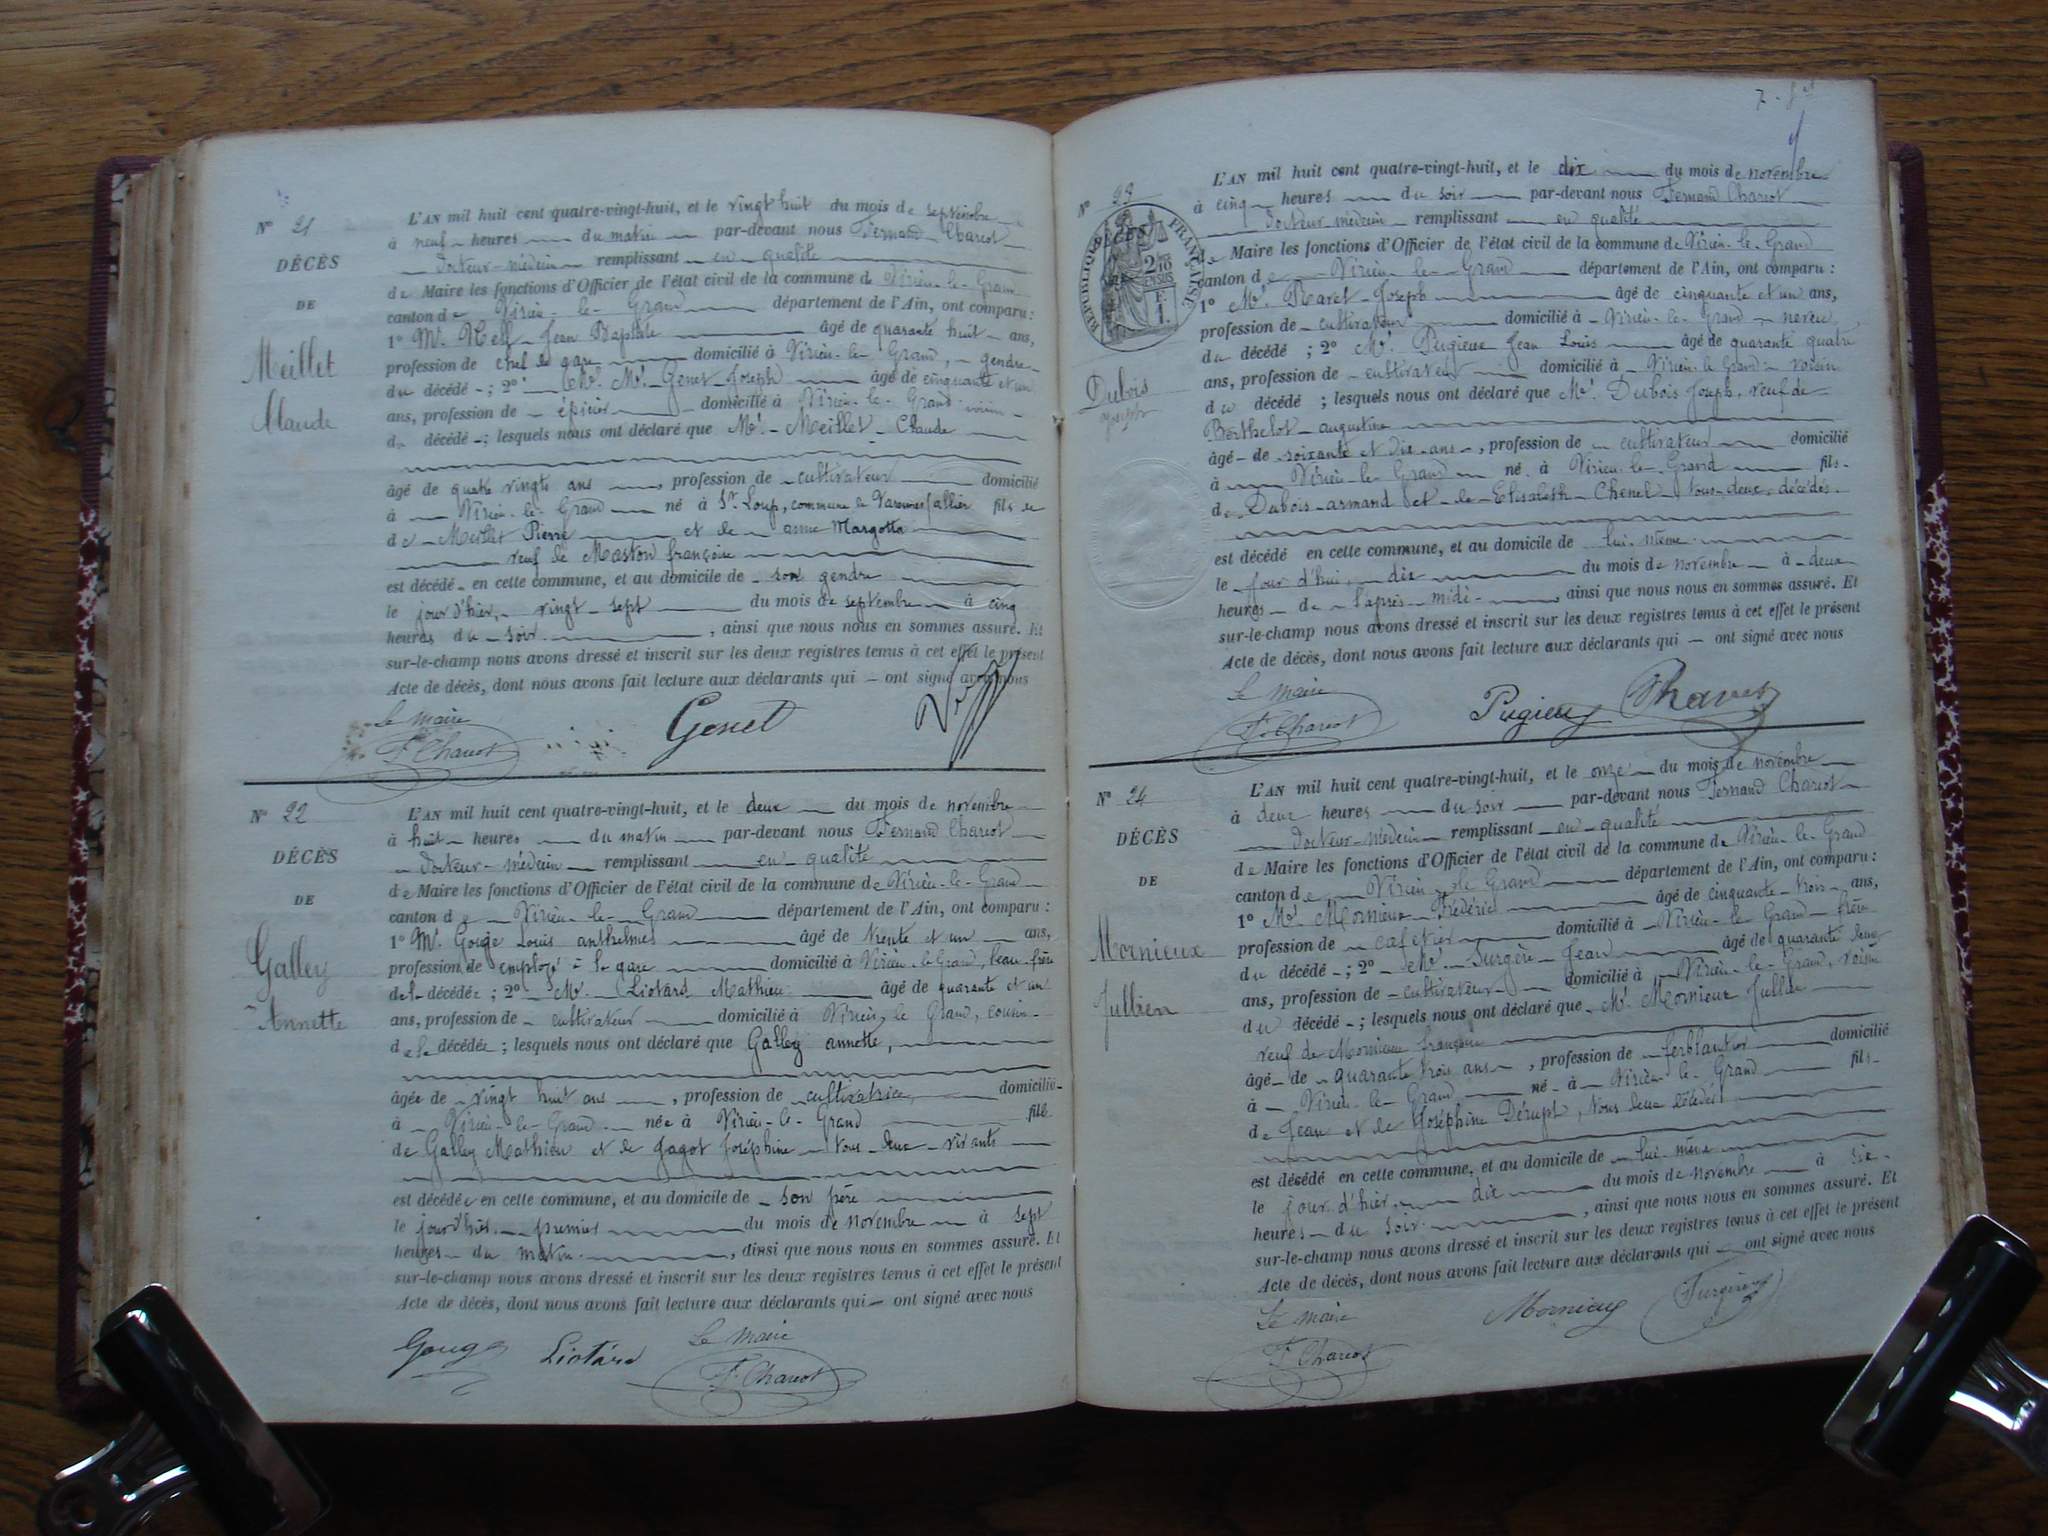 N° 21
DÉCÈS
DE
Meillet
Claude
L'AN mil huit cent quatre-vingt-huit, et le vingt huit du mois de septembre
à neuf heures du matin par-devant nous Fernand Charcot
docteur-médecin remplissant en qualité
de Maire les fonctions d'Officier de l'état civil de la commune de Virieu-le-Grand
canton de Virieu-le-Grand département de l'Ain, ont comparu :
1° Mr. Neff Jean Baptiste âgé de quarante huit ans,
profession de chef de gare domicilié à Virieu-le-Grand, gendre
du décédé ; 2° Mr. Genet Joseph âgé de cinquante et un
ans, profession de épicier domicilié à Virieu-le-Grand voisin
du décédé ; lesquels nous ont déclaré que Mr. Meillet Claude
âgé de quatre vingts ans, profession de cultivateur domicilié
à Virieu-le-Grand né à St. Loup, commune de Varennes s/allier fils
de Meillet Pierre et de anne Margotta
veuf de Maston françoise
est décédé en cette commune, et au domicile de son gendre
le jour d'hier, vingt-sept du mois de septembre à cinq
heures du soir, ainsi que nous nous en sommes assuré. Et
sur-le-champ nous avons dressé et inscrit sur les deux registres tenus à cet effet le présent
Acte de décès, dont nous avons fait lecture aux déclarants qui ont signé avec nous
Le Maire
F. Charcot
Genet
Neff
N° 22
DÉCÈS
DE
Galley
Annette
L'AN mil huit cent quatre-vingt-huit, et le deux du mois de novembre
à huit heures du matin par-devant nous Fernand Charcot
docteur-médecin remplissant en qualité
de Maire les fonctions d'Officier de l'état civil de la commune de Virieu-le-Grand
canton de Virieu-le-Grand département de l'Ain, ont comparu :
1° Mr. Gouge Louis anthelmes âgé de trente et un ans,
profession de employé à la gare domicilié à Virieu-le-Grand, beau-frère
de la décédée ; 2° Mr. Liotard Mathieu âgé de quarante et un
ans, profession de cultivateur domicilié à Virieu le Grand, cousin
de la décédée ; lesquels nous ont déclaré que Galley annette,
âgée de vingt huit ans, profession de cultivatrice, domiciliée
à Virieu-le-Grand née à Virieu-le-Grand fille
de Galley Mathieu et de Jagot Joséphine tous deux vivants
est décédée en cette commune, et au domicile de son père
le jour d'hier premier du mois de novembre à sept
heures du matin, ainsi que nous nous en sommes assuré. Et
sur-le-champ nous avons dressé et inscrit sur les deux registres tenus à cet effet le présent
Acte de décès, dont nous avons fait lecture aux déclarants qui ont signé avec nous
Gouge
Liotard
Le Maire
F. Charcot
N° 23
DÉCÈS
RÉPUBLIQUE FRANÇAISE
2/10 EN SUS
F. 1.
Dubois
Joseph
L'AN mil huit cent quatre-vingt-huit, et le dix du mois de novembre
à cinq heures du soir par-devant nous Fernand Charcot
docteur médecin remplissant en qualité
de Maire les fonctions d'Officier de l'état civil de la commune de Virieu-le-Grand
canton de Virieu-le-Grand département de l'Ain, ont comparu :
1° Mr. Ravet Joseph âgé de cinquante et un ans,
profession de cultivateur domicilié à Virieu-le-Grand neveu
du décédé ; 2° Mr. Pugieux Jean Louis âgé de quarante quatre
ans, profession de cultivateur domicilié à Virieu-le-Grand voisin
du décédé ; lesquels nous ont déclaré que Mr. Dubois Joseph, veuf de
Berthelot augustine
âgé de soixante et dix ans, profession de cultivateur domicilié
à Virieu-le-Grand né à Virieu-le-Grand fils
de Dubois armand et de Elisabeth Chenet tous deux décédés
est décédé en cette commune, et au domicile de lui-même
le jour d'hui, dix du mois de novembre à deux
heures de l'après-midi, ainsi que nous nous en sommes assuré. Et
sur-le-champ nous avons dressé et inscrit sur les deux registres tenus à cet effet le présent
Acte de décès, dont nous avons fait lecture aux déclarants qui ont signé avec nous
Le Maire
F. Charcot
Pugieux
Ravet
N° 24
DÉCÈS
DE
Mornieux
Jullien
L'AN mil huit cent quatre-vingt-huit, et le onze du mois de novembre
à deux heures du soir par-devant nous Fernand Charcot
docteur-médecin remplissant en qualité
de Maire les fonctions d'Officier de l'état civil de la commune de Virieu-le-Grand
canton de Virieu-le-Grand département de l'Ain, ont comparu :
1° Mr. Mornieux Frédéric âgé de cinquante-trois ans,
profession de cafetier domicilié à Virieu-le-Grand frère
du décédé ; 2° Mr. Surgère Jean âgé de quarante deux
ans, profession de cultivateur domicilié à Virieu-le-Grand, voisin
du décédé ; lesquels nous ont déclaré que Mr. Mornieux Jullien
veuf de Mornieux françoise
âgé de quarante trois ans, profession de ferblantier domicilié
à Virieu-le-Grand né à Virieu-le-Grand fils
de Jean et de Joséphine Dérupt, tous deux décédés
est décédé en cette commune, et au domicile de lui-même
le jour d'hier, dix du mois de novembre à six
heures du soir, ainsi que nous nous en sommes assuré. Et
sur-le-champ nous avons dressé et inscrit sur les deux registres tenus à cet effet le présent
Acte de décès, dont nous avons fait lecture aux déclarants qui ont signé avec nous
Le Maire
F. Charcot
Mornieux
Surgère